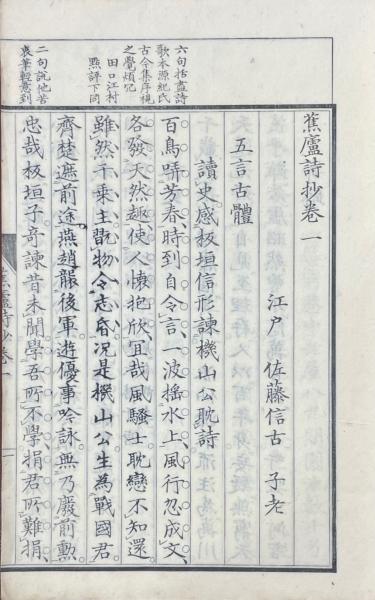 蕉廬詩抄卷一
江戶 佐藤信古 子老
五言古體
讀史感板垣信形諫機山公耽詩
百鳥哢芳春時到自令言一波搖水上風行忽成文
各發天然趣使人懷抱欣宜哉風騷士耽戀不知還
雖然千乘主翫物令志昏况是機山公生為戰國君
齊楚遮前途燕趙襲後軍遊優事吟詠無乃廢前勲
忠哉板垣子奇諫昔未聞學吾所不學捐君所難捐
六句括盡詩
歌本源紀氏
古今集序視
之覺煩冗
田口江村
點評下同
二句說他苦
衷筆輕意到
蕉廬詩抄卷一